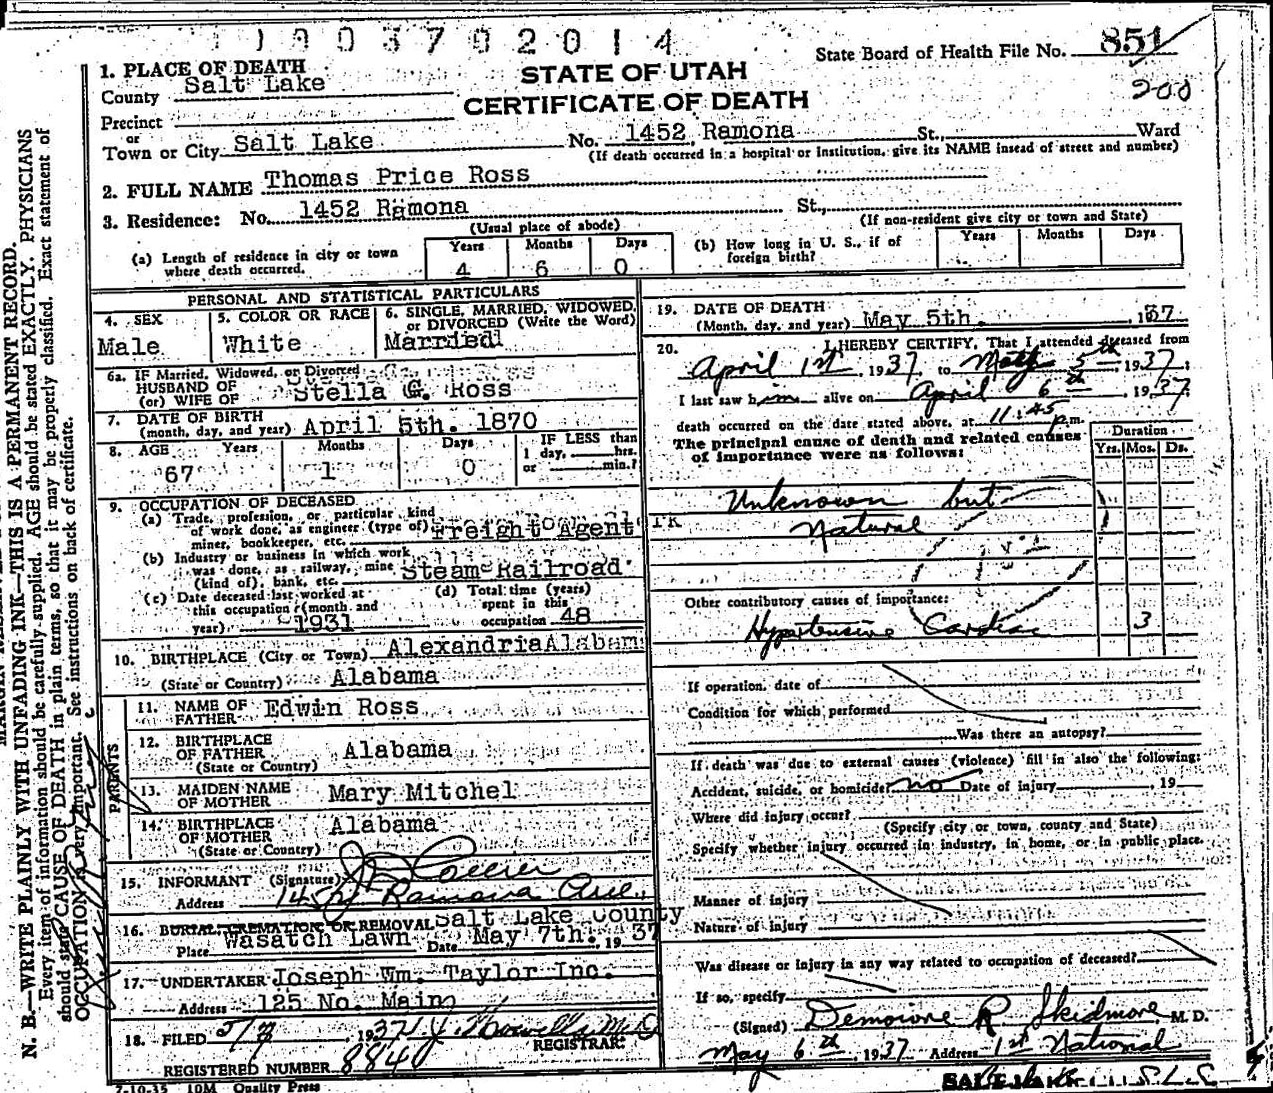 1 1 0 0 3 7 0 2 0 1 4
State Board of Health File No. 851
200
STATE OF UTAH
CERTIFICATE OF DEATH
1. PLACE OF DEATH
County Salt Lake
Precinct
or
Town or City Salt Lake No. 1452 Ramona St., Ward
(If death occurred in a hospital or institution, give its NAME insead of street and number)
2. FULL NAME Thomas Price Ross
3. Residence: No. 1452 Ramona St.,
(Usual place of abode) (If non-resident give city or town and State)
(a) Length of residence in city or town where death occurred. Years 4 Months 6 Days 0
(b) How long in U. S., if of foreign birth? Years Months Days
PERSONAL AND STATISTICAL PARTICULARS
4. SEX Male
5. COLOR OR RACE White
6. SINGLE, MARRIED, WIDOWED, or DIVORCED (Write the Word) Married
6a. IF Married, Widowed, or Divorced
HUSBAND OF
(or) WIFE OF Stella G. Ross
7. DATE OF BIRTH
(month, day, and year) April 5th. 1870
8. AGE Years 67 Months 1 Days 0 IF LESS than 1 day, hrs. or min.?
9. OCCUPATION OF DECEASED
(a) Trade, profession, or particular kind of work done, as engineer (type of) miner, bookkeeper, etc. Freight Agent
(b) Industry or business in which work was done, as railway, mine (kind of), bank, etc. Steam Railroad
(c) Date deceased last worked at this occupation (month and year) 1931
(d) Total time (years) spent in this occupation 48
10. BIRTHPLACE (City or Town) Alexandria Alabam
(State or Country) Alabama
PARENTS
11. NAME OF FATHER Edwin Ross
12. BIRTHPLACE OF FATHER (State or Country) Alabama
13. MAIDEN NAME OF MOTHER Mary Mitchel
14. BIRTHPLACE OF MOTHER (State or Country) Alabama
15. INFORMANT (Signature)
Address Ramona Ave.
16. BURIAL, CREMATION OR REMOVAL Salt Lake County
Place Wasatch Lawn Date May 7th. 1937
17. UNDERTAKER Joseph Wm. Taylor Inc.
Address 125 No. Main
18. FILED 5/7, 1937
REGISTRAR
REGISTERED NUMBER 8840
7-10-35 10M Quality Press
19. DATE OF DEATH
(Month, day, and year) May 5th. , 1937
20. I HEREBY CERTIFY, That I attended deceased from
April 1st, 1937, to May 5th, 1937,
I last saw him alive on April 6th, 1937,
death occurred on the date stated above, at 11:45 p.m.
The principal cause of death and related causes of importance were as follows:
Duration
Yrs. Mos. Ds.
Unknown but
Natural
Other contributory causes of importance:
Hypertensive Cardiac 3
If operation, date of
Condition for which performed
Was there an autopsy?
If death was due to external causes (violence) fill in also the following:
Accident, suicide, or homicide? no Date of injury , 19
Where did injury occur?
(Specify city or town, county and State)
Specify whether injury occurred in industry, in home, or in public place.
Manner of injury
Nature of injury
Was disease or injury in any way related to occupation of deceased?
If so, specify
(Signed) R Skidmore, M. D.
May 6th, 1937 Address 1st National
N. B.—WRITE PLAINLY WITH UNFADING INK—THIS IS A PERMANENT RECORD.
Every item of information should be carefully supplied. AGE should be stated EXACTLY. PHYSICIANS
should state CAUSE OF DEATH in plain terms, so that it may be properly classified. Exact statement of
OCCUPATION is very important. See instructions on back of certificate.